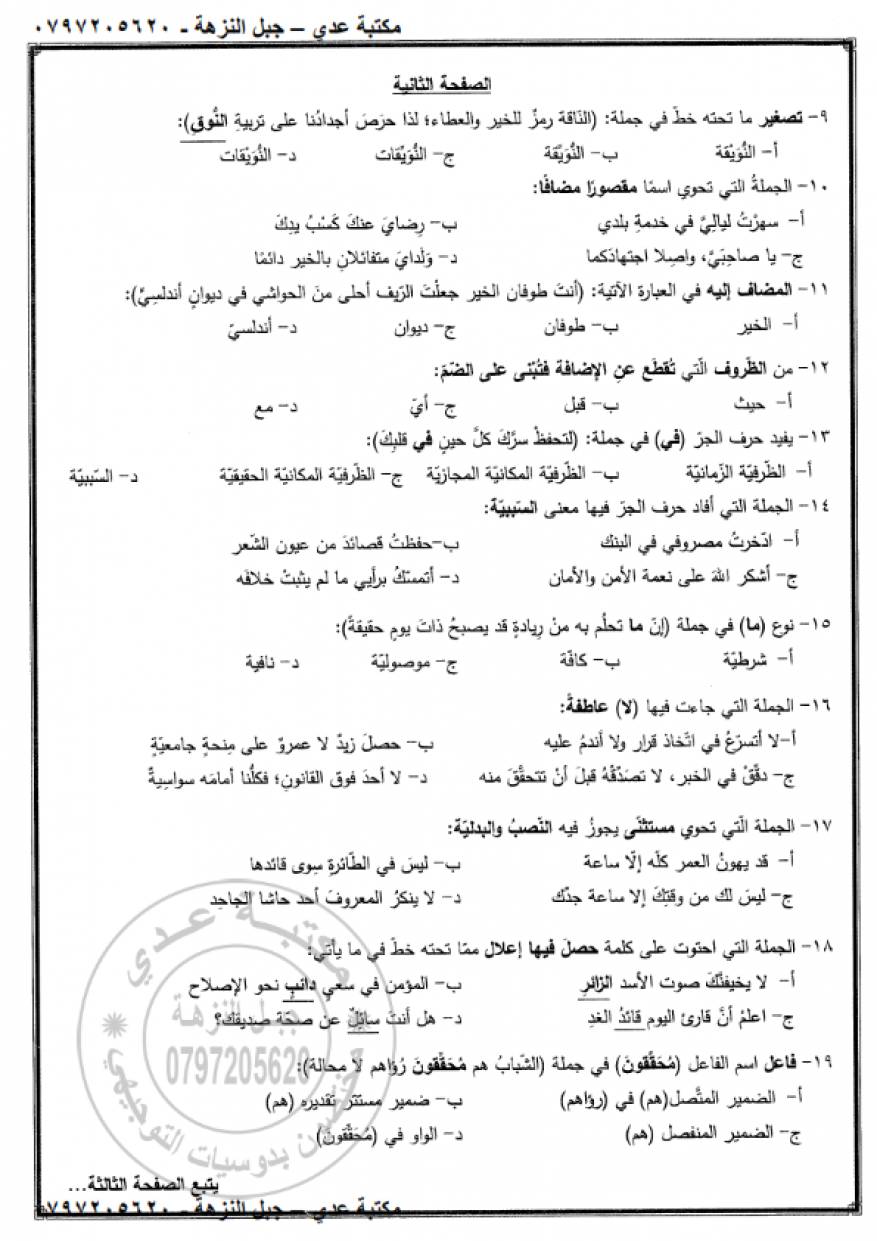 مكتبة عدي – جبل النزهة - ٠٧٩٧٢٠٥٦٢٠
الصفحة الثانية
٩- تصغير ما تحته خطّ في جملة: (النّاقة رمزٌ للخير والعطاء؛ لذا حرَصَ أجدادُنا على تربيةِ النُّوقِ):
أ- النُّوَيْقة ب- النُّوَيِّقة ج- النُّوَيِّقات د- النُّوَيْقات
١٠- الجملةُ التي تحوي اسمًا مقصورًا مضافًا:
أ- سهرْتُ لياليَّ في خدمةِ بلدي ب- رِضايَ عنكَ كَسْبُ يدِكَ
ج- يا صاحِبَيَّ، واصِلا اجتهادَكما د- وَلَدايَ متفائلانِ بالخير دائمًا
١١- المضاف إليه في العبارة الآتية: (أنتَ طوفان الخير جعلْتَ الرّيف أحلى منَ الحواشي في ديوانٍ أندلسيٍّ):
أ- الخير ب- طوفان ج- ديوان د- أندلسيّ
١٢- من الظّروف الّتي تُقطَع عنِ الإضافة فتُبْنى على الضّمّ:
أ- حيث ب- قبل ج- أيّ د- مع
١٣- يفيد حرف الجرّ (في) في جملة: (لتحفظْ سرَّكَ كلَّ حينٍ في قلبِكَ):
أ- الظّرفيّة الزّمانيّة ب- الظّرفيّة المكانيّة المجازيّة ج- الظّرفيّة المكانيّة الحقيقيّة د- السّببيّة
١٤- الجملة التي أفاد حرف الجرّ فيها معنى السّببيّة:
أ- ادّخرتُ مصروفي في البنك ب-حفظتُ قصائدَ من عيون الشّعر
ج- أشكر اللهَ على نعمة الأمن والأمان د- أتمسّكُ برأيي ما لم يثبتْ خلافَه
١٥- نوع (ما) في جملة (إنّ ما تحلُم به منْ رِيادةٍ قد يصبحُ ذاتَ يومٍ حقيقةً):
أ- شرطيّة ب- كافّة ج- موصوليّة د- نافية
١٦- الجملة التي جاءت فيها (لا) عاطفةً:
أ-لا أتسرّعُ في اتّخاذ قرار ولا أندمُ عليه ب- حصلَ زيدٌ لا عمروٌ على مِنحةٍ جامعيّةٍ
ج- دقّقْ في الخبر، لا تصدّقْهُ قبلَ أنْ تتحقّقَ منه د- لا أحدَ فوق القانونِ؛ فكلُّنا أمامَه سواسيةٌ
١٧- الجملة الّتي تحوي مستثنًى يجوزُ فيه النّصبُ والبدليّة:
أ- قد يهونُ العمر كلّه إلّا ساعة ب- ليسَ في الطّائرةِ سِوى قائدها
ج- ليسَ لك من وقتِكَ إلا ساعة جدّك د- لا ينكرُ المعروفَ أحد حاشا الجاحِد
١٨- الجملة التي احتوت على كلمة حصلَ فيها إعلال ممّا تحته خطّ في ما يأتي:
أ- لا يخيفنَّكَ صوت الأسد الزائرِ ب- المؤمن في سعيٍ دائبٍ نحو الإصلاح
ج- اعلمْ أنَّ قارئ اليوم قائدُ الغدِ د- هل أنتَ سائلٌ عن صحّة صديقك؟
١٩- فاعل اسم الفاعل (مُحَقّقونَ) في جملة (الشّبابُ هم مُحَقّقونَ رُؤاهم لا محالة):
أ- الضمير المتّصل(هم) في (رؤاهم) ب- ضمير مستتر تقديره (هم)
ج- الضمير المنفصل (هم) د- الواو في (مُحَقّقونَ)
يتبع الصفحة الثالثة...
مكتبة عدي – جبل النزهة - ٠٧٩٧٢٠٥٦٢٠
مكتبة عدي
جبل النزهة
0797205620
بدوسيات التوجيهي